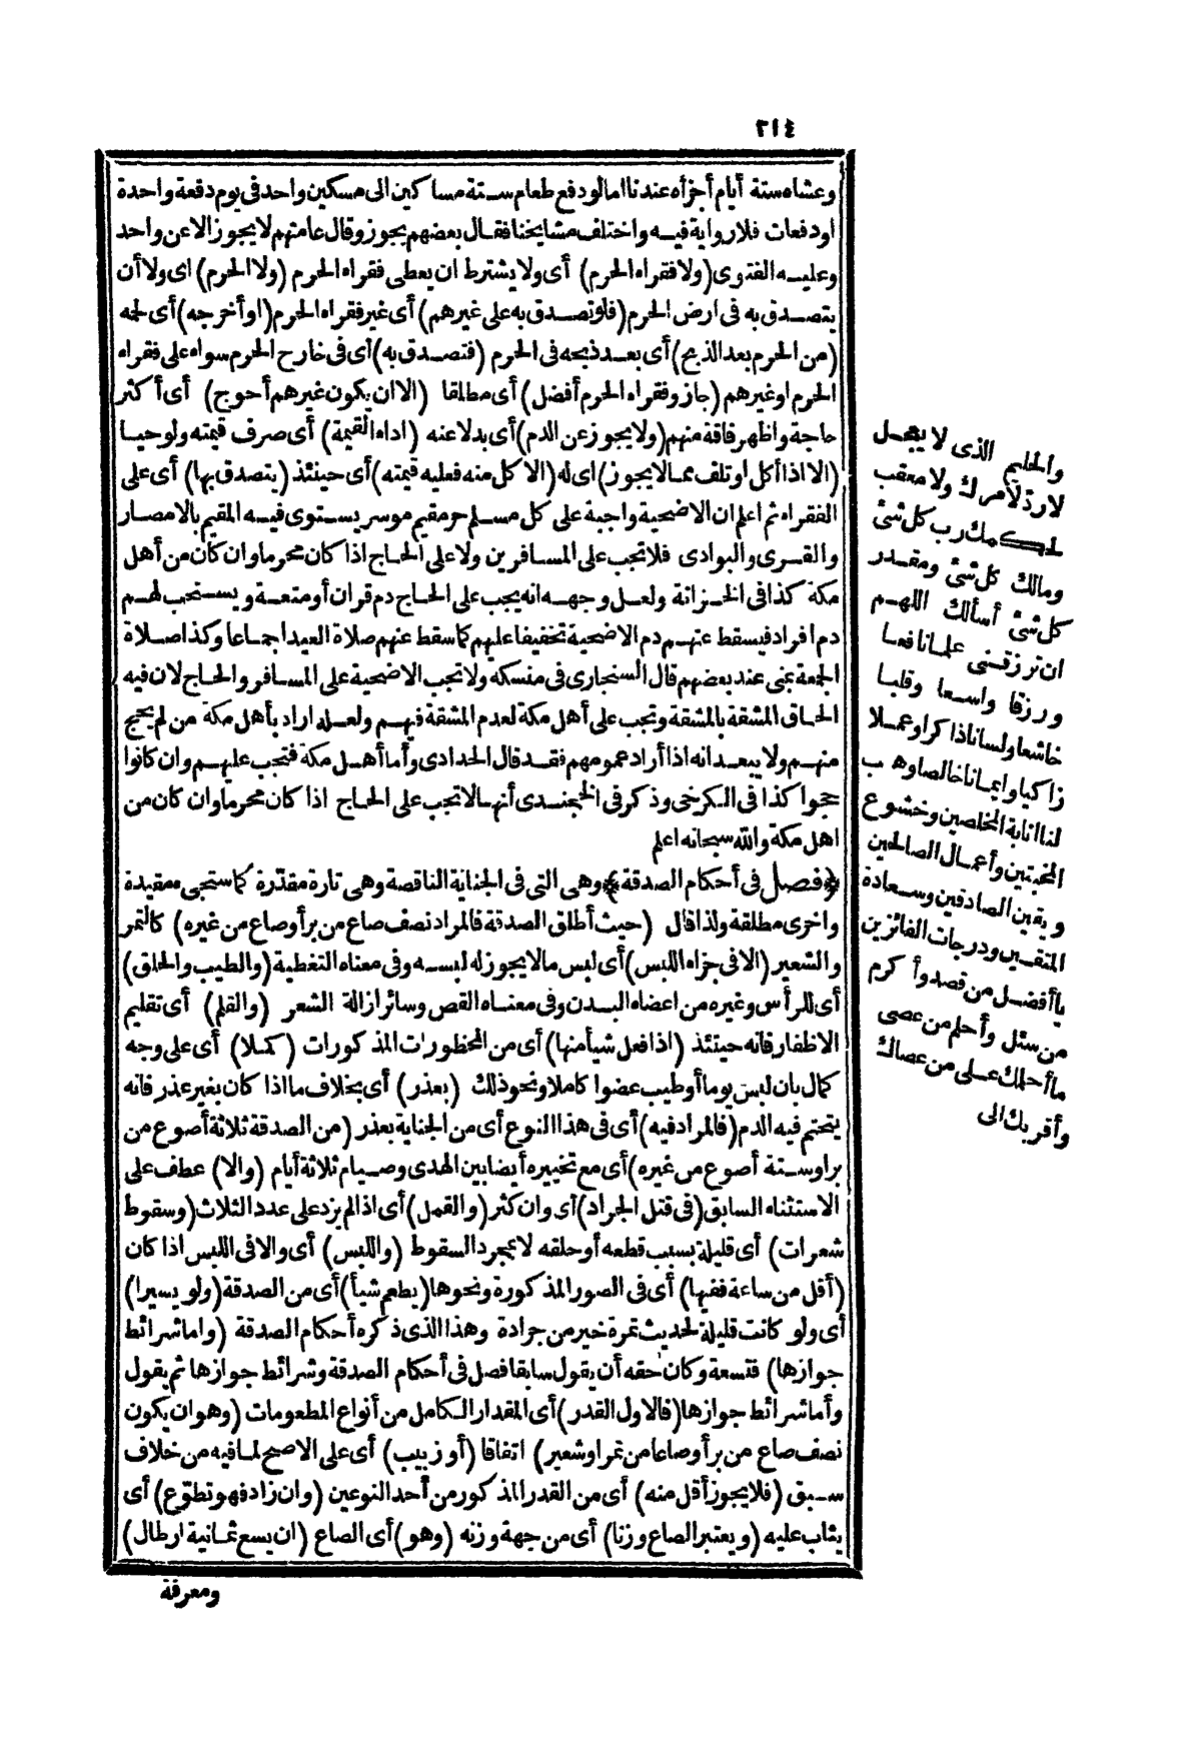 ٢١٤
وعشاه ستة أيام أجزأه عندنا امالو دفع طعام ستة مساكين الى مسكين واحد فى يوم دفعة واحدة
او دفعات فلا رواية فيه واختلف مشايخنا فقال بعضهم يجوز وقال عامتهم لا يجوز الا عن واحد
وعليه الفتوى (ولا فقراء الحرم) أى ولا يشترط ان يعطى فقراء الحرم (ولا الحرم) اى ولا أن
يتصدق به فى ارض الحرم (فلو تصدق به على غيرهم) أى غير فقراء الحرم (او أخرجه) أى لحمه
(من الحرم بعد الذبح) أى بعد ذبحه فى الحرم (فتصدق به) أى فى خارج الحرم سواء على فقراء
الحرم او غيرهم (جاز وفقراء الحرم أفضل) أى مطلقا (الا ان يكون غيرهم أحوج) أى أكثر
حاجة واظهر فاقة منهم (ولا يجوز عن الدم) أى بدلا عنه (اداء القيمة) أى صرف قيمته ولو حيا
(الا اذا أكل او تلف مما لا يجوز) اى له (الاكل منه فعليه قيمته) أى حينئذ (يتصدق بها) أى على
الفقراء ثم اعلم ان الاضحية واجبة على كل مسلم حر مقيم موسر يستوى فيه المقيم بالامصار
والقرى والبوادى فلا تجب على المسافرين ولا على الحاج اذا كان محرما وان كان من أهل
مكة كذا فى الخزانة ولعل وجهه انه يجب على الحاج دم قران أو متعة ويستحب لهم
دم افراد فيسقط عنهم دم الاضحية تخفيفا عليهم كما سقط عنهم صلاة العيد اجماعا وكذا صلاة
الجمعة بمنى عند بعضهم قال السنجارى فى منسكه ولا تجب الاضحية على المسافر والحاج لان فيه
الحاق المشقة بالمشقة وتجب على أهل مكة لعدم المشقة فيهم ولعله اراد بأهل مكة من لم يحج
منهم ولا يبعد انه اذا أراد عمومهم فقد قال الحدادى وأما أهل مكة فتجب عليهم وان كانوا
حجوا كذا فى الكرخى وذكر فى الخجندى أنها لا تجب على الحاج اذا كان محرما وان كان من
اهل مكة والله سبحانه اعلم
﴿فصل فى أحكام الصدقة﴾ وهى التى فى الجناية الناقصة وهى تارة مقدّرة كما ستجىء مقيدة
واخرى مطلقة ولذا قال (حيث أطلق الصدقة فالمراد نصف صاع من بر أو صاع من غيره) كالتمر
والشعير (الا فى جزاء اللبس) أى لبس مالا يجوز له لبسه وفى معناه التغطية (والطيب والحلق)
أى للرأس وغيره من اعضاء البدن وفى معناه القص وسائر ازالة الشعر (والقلم) أى تقليم
الاظفار فانه حينئذ (اذا فعل شيأ منها) أى من المحظورات المذكورات (كملا) أى على وجه
كمال بان لبس يوما أو طيب عضوا كاملا ونحو ذلك (بعذر) أى بخلاف ما اذا كان بغير عذر فانه
يتحتم فيه الدم (فالمراد فيه) أى فى هذا النوع أى من الجناية بعذر (من الصدقة ثلاثة أصوع من
بر او ستة أصوع من غيره) أى مع تخييره أيضا بين الهدى وصيام ثلاثة أيام (والا) عطف على
الاستثناء السابق (فى قتل الجراد) أى وان كثر (والقمل) أى اذا لم يزد على عدد الثلاث (وسقوط
شعرات) أى قليلة بسبب قطعه أو حلقه لا بمجرد السقوط (واللبس) أى والا فى اللبس اذا كان
(أقل من ساعة ففيها) أى فى الصور المذكورة ونحوها (يطعم شيأ) أى من الصدقة (ولو يسيرا)
أى ولو كانت قليلة لحديث تمرة خير من جرادة وهذا الذى ذكره أحكام الصدقة (واما شرائط
جوازها) فتسعة وكان حقه أن يقول سابقا فصل فى أحكام الصدقة وشرائط جوازها ثم يقول
وأما شرائط جوازها (فالاول القدر) أى المقدار الكامل من أنواع المطعومات (وهو ان يكون
نصف صاع من بر أو صاعا من تمر او شعير) اتفاقا (أو زبيب) أى على الاصح لما فيه من خلاف
سبق (فلا يجوز أقل منه) أى من القدر المذكور من أحد النوعين (وان زاد فهو تطوّع) أى
يثاب عليه (ويعتبر الصاع وزنا) أى من جهة وزنه (وهو) أى الصاع (ان يسع ثمانية ارطال)
ومعرفة
والحليم الذى لا يعجل
لا رد لأمرك ولا معقب
لحكمك رب كل شئ
ومالك كل شئ ومقدر
كل شئ أسألك اللهم
ان ترزقنى علما نافعا
ورزقا واسعا وقلبا
خاشعا ولسانا ذاكرا وعملا
زاكيا وايمانا خالصا وهب
لنا انابة المخلصين وخشوع
المخبتين وأعمال الصالحين
ويقين الصادقين وسعادة
المتقين ودرجات الفائزين
يا أفضل من قصد وأكرم
من سئل وأحلم من عصى
ما أحلمك على من عصاك
وأقربك الى